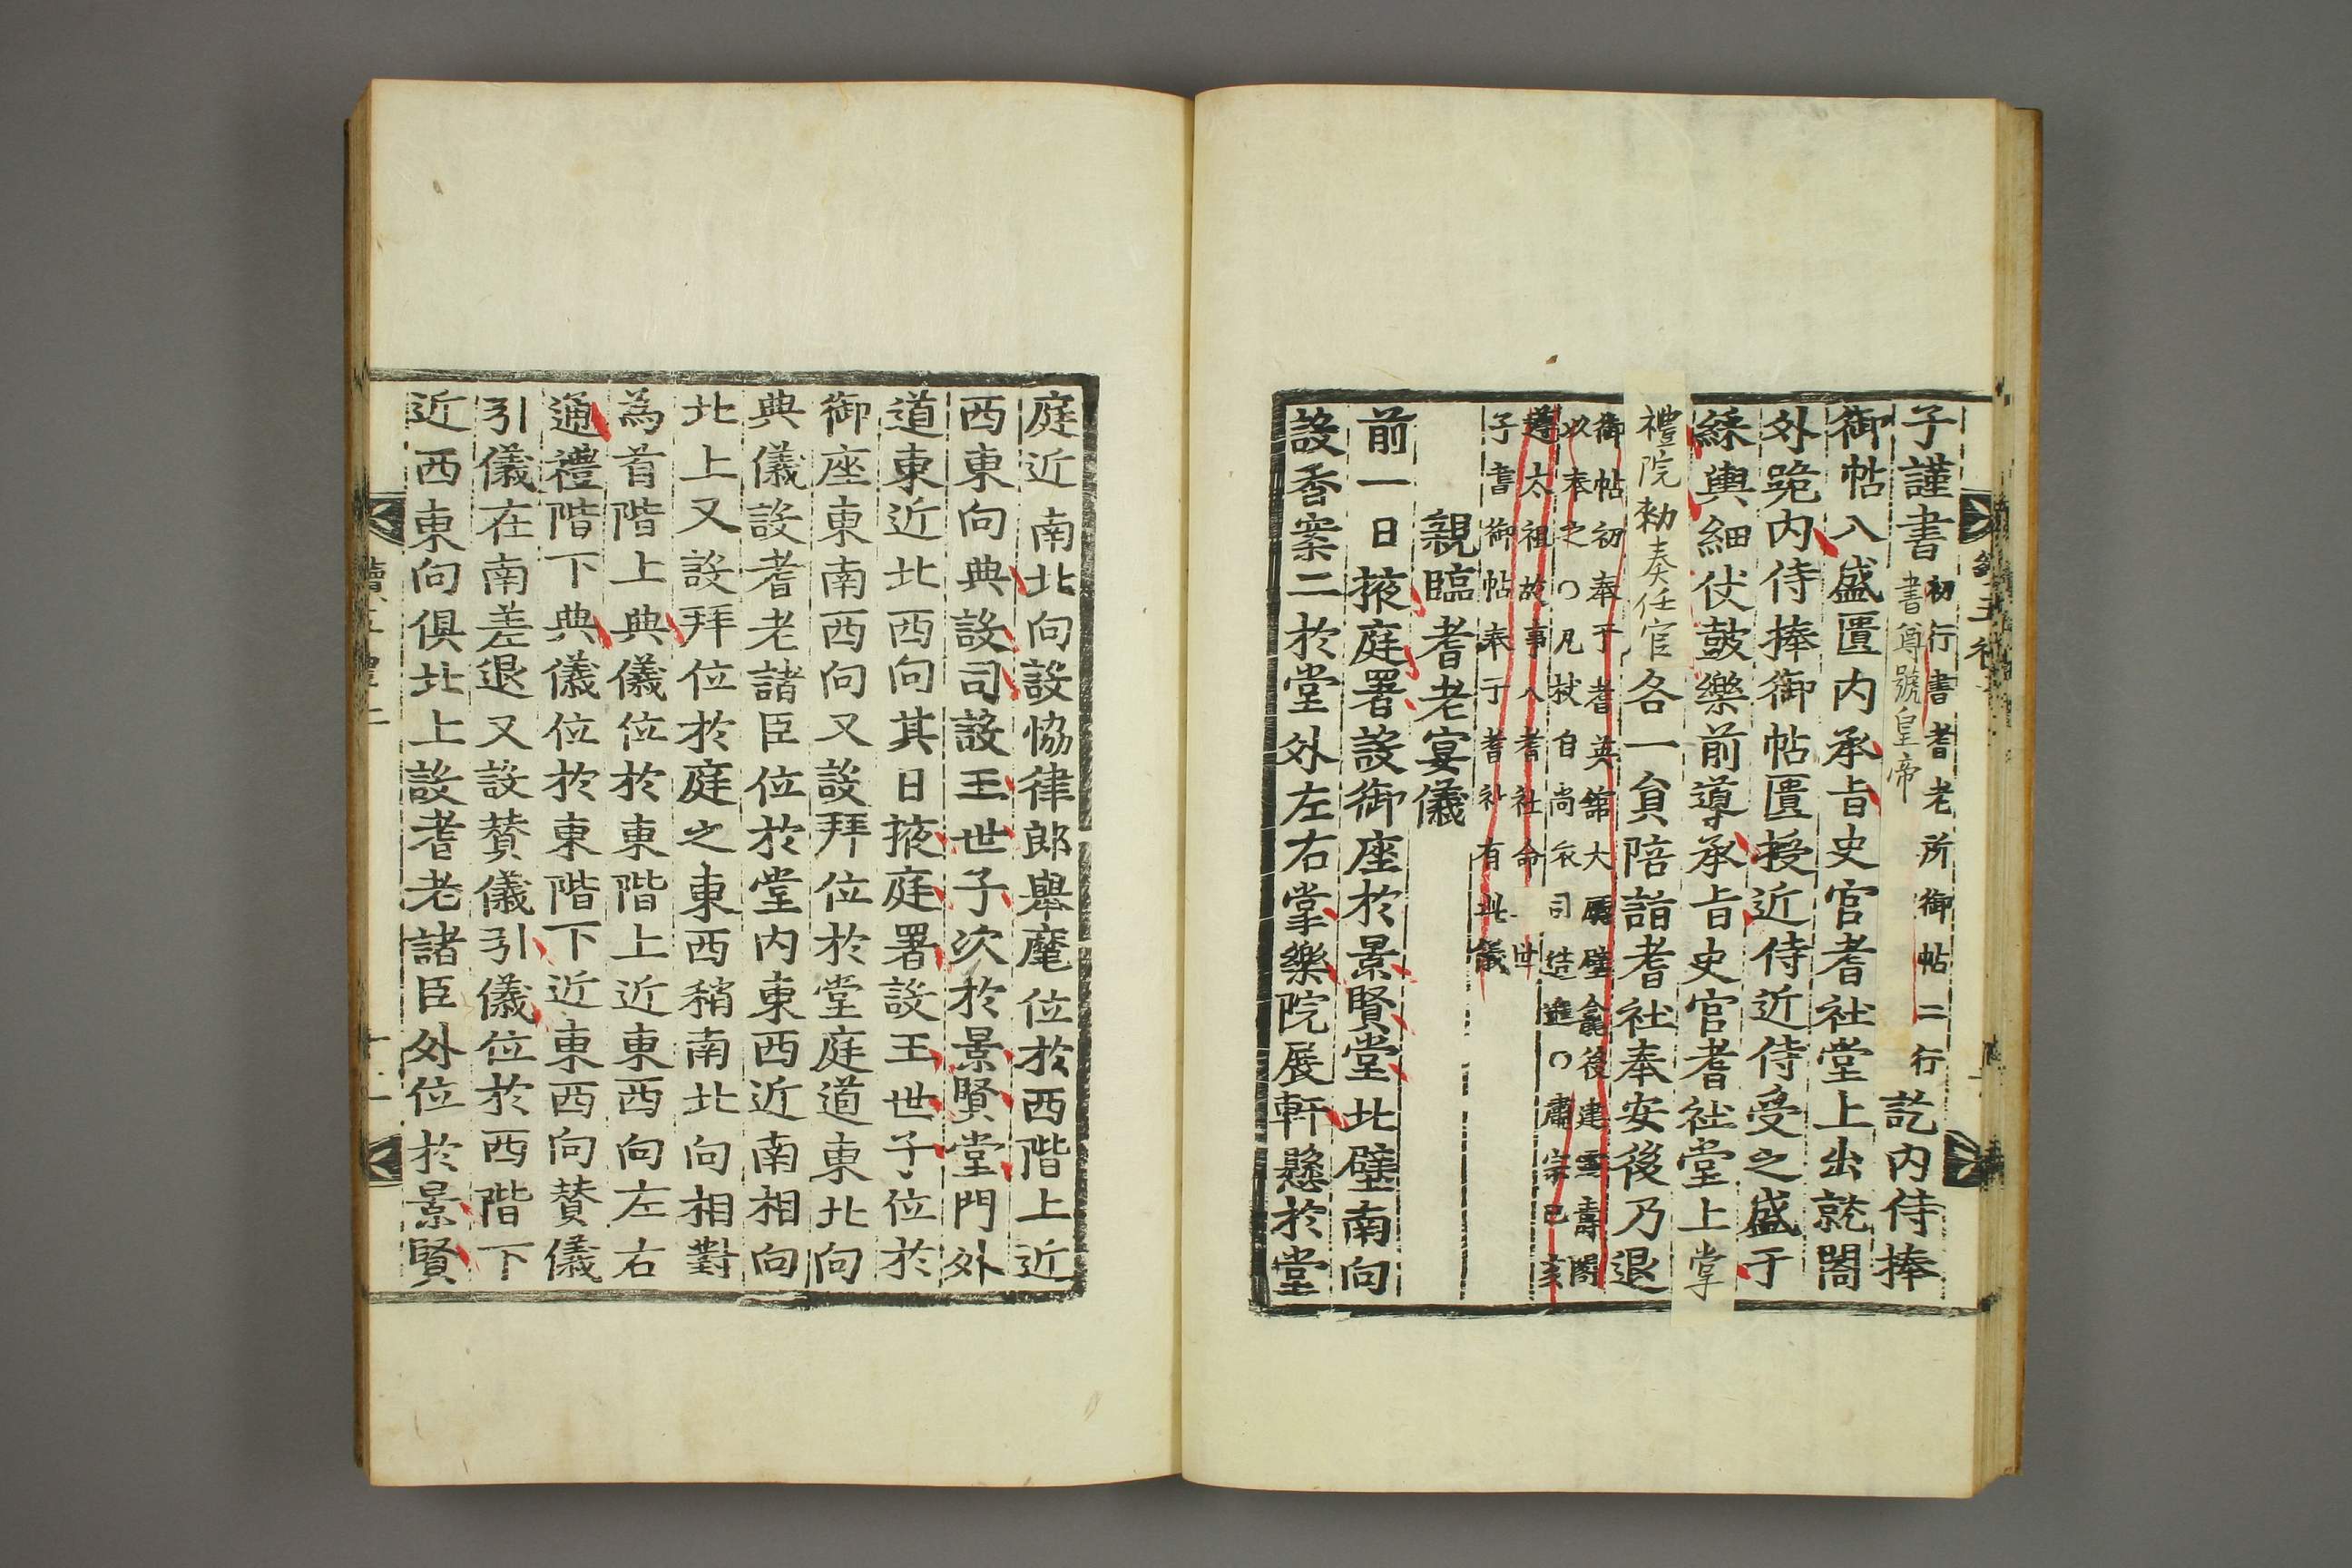 子謹書初行書耆老所御帖二行書尊號皇帝訖內侍捧
御帖入盛匱內承旨史官耆社堂上出就閤
外跪內侍捧御帖匱授近侍近侍受之盛于
綵輿細仗鼓樂前導承旨史官耆社堂上掌
禮院勅奏任官各一員陪詣耆社奉安後乃退
御帖初奉于耆英館大廳壁龕後建靈壽閣
以奉之○凡杖自尙衣司造進○肅宗己亥
遵太祖故事入耆社命世
子書御帖奉于耆社有此儀
親臨耆老宴儀
前一日掖庭署設御座於景賢堂北壁南向
設香案二於堂外左右掌樂院展軒懸於堂
庭近南北向設協律郎舉麾位於西階上近
西東向典設司設王世子次於景賢堂門外
道東近北西向其日掖庭署設王世子位於
御座東南西向又設拜位於堂庭道東北向
典儀設耆老諸臣位於堂內東西近南相向
北上又設拜位於庭之東西稍南北向相對
為首階上典儀位於東階上近東西向左右
通禮階下典儀位於東階下近東西向賛儀
引儀在南差退又設賛儀引儀位於西階下
近西東向俱北上設耆老諸臣外位於景賢